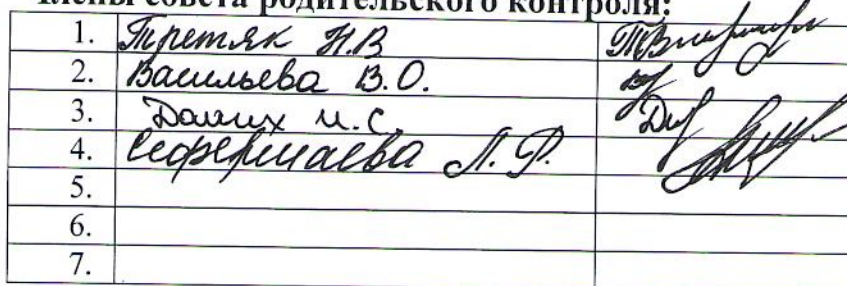 Члены совета родительского контроля:
1. Третяк Н.В
2. Васильева В.О.
3. Долгих И.С
4. Л. Р.
5.
6.
7.